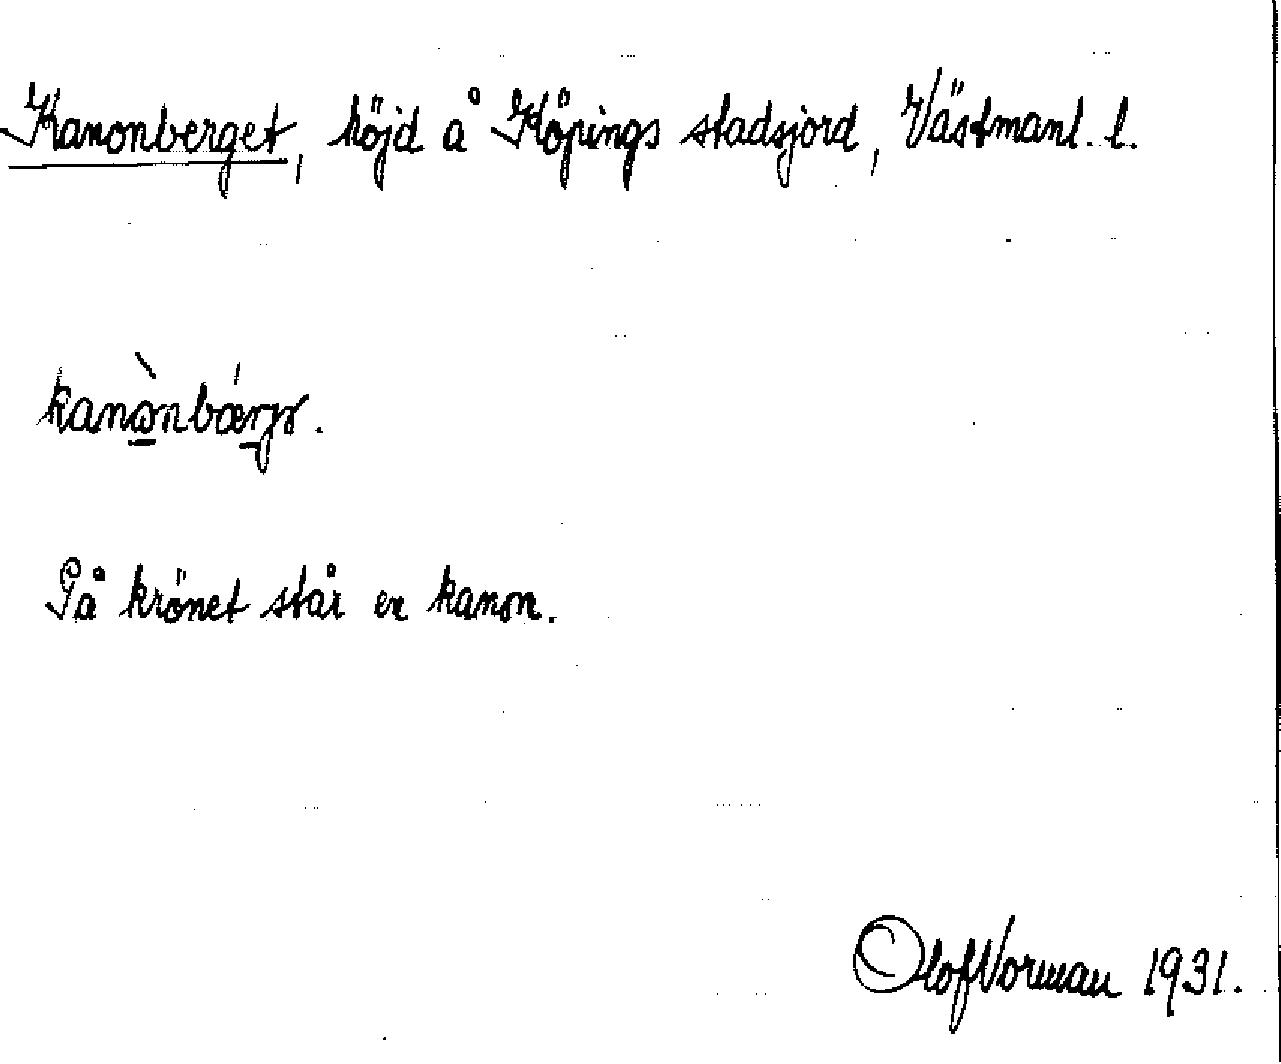 Kanonberget, höjd å Köpings stadsjord, Västmanl. l.
På krönet står en kanon.
Olof Norman 1931.